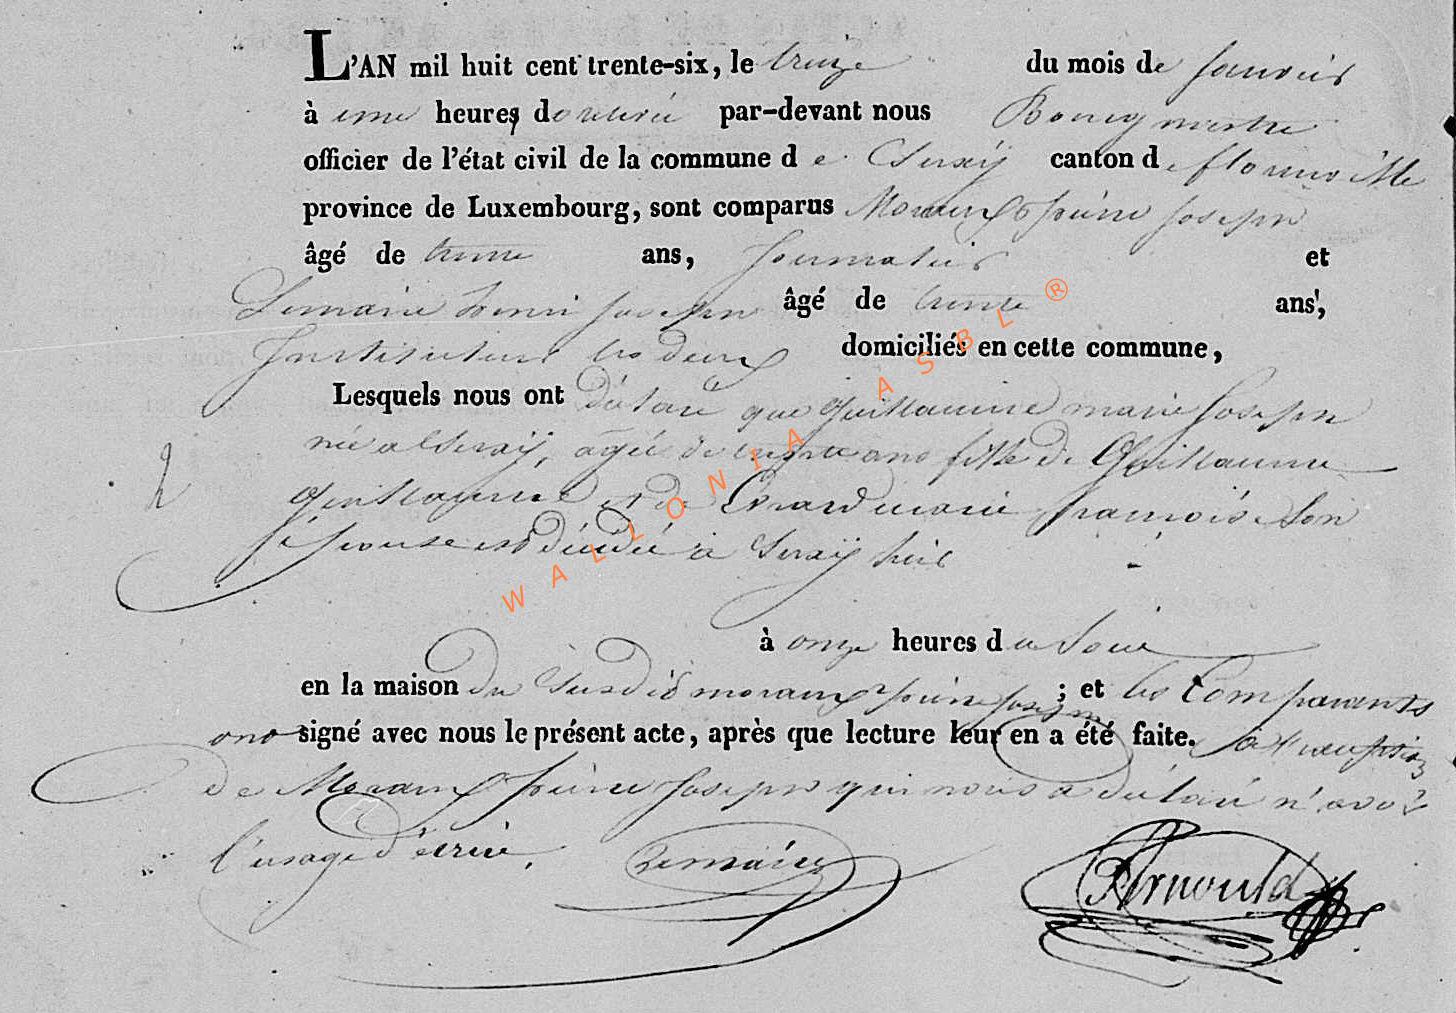 L'AN mil huit cent trente-six, le treize du mois de Janvier
à une heures de relevée par-devant nous Bourgmestre
officier de l'état civil de la commune de canton de florenville
province de Luxembourg, sont comparus Moraux pierre Joseph
âgé de trente ans, Journalier et
Lemaire henri Joseph âgé de trente ans,
Instituteur les deux domiciliés en cette commune,
Lesquels nous ont déclaré que Guillaume marie Joseph
née a agée de ans fille de Guillaume
Guillaume et de Evrard marie françoise son
épouse est décédée à hier
à onze heures du soir
en la maison du susdit moraux pierre joseph ; et les Comparants
ont signé avec nous le présent acte, après que lecture leur en a été faite. à l'exeption
de Moraux pierre Joseph qui nous a déclaré n'avoir
l'usage d'écrire.
Lemaire
Arnould
2
WALLONIA ASBL ®